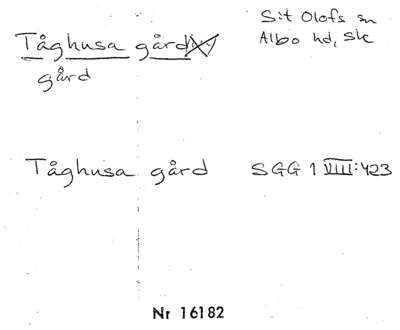 Tåghusa gård
S:t Olofs sn
Albo hd, Sk
gård
Tåghusa gård SGG 1 VIII:423
Nr 16182